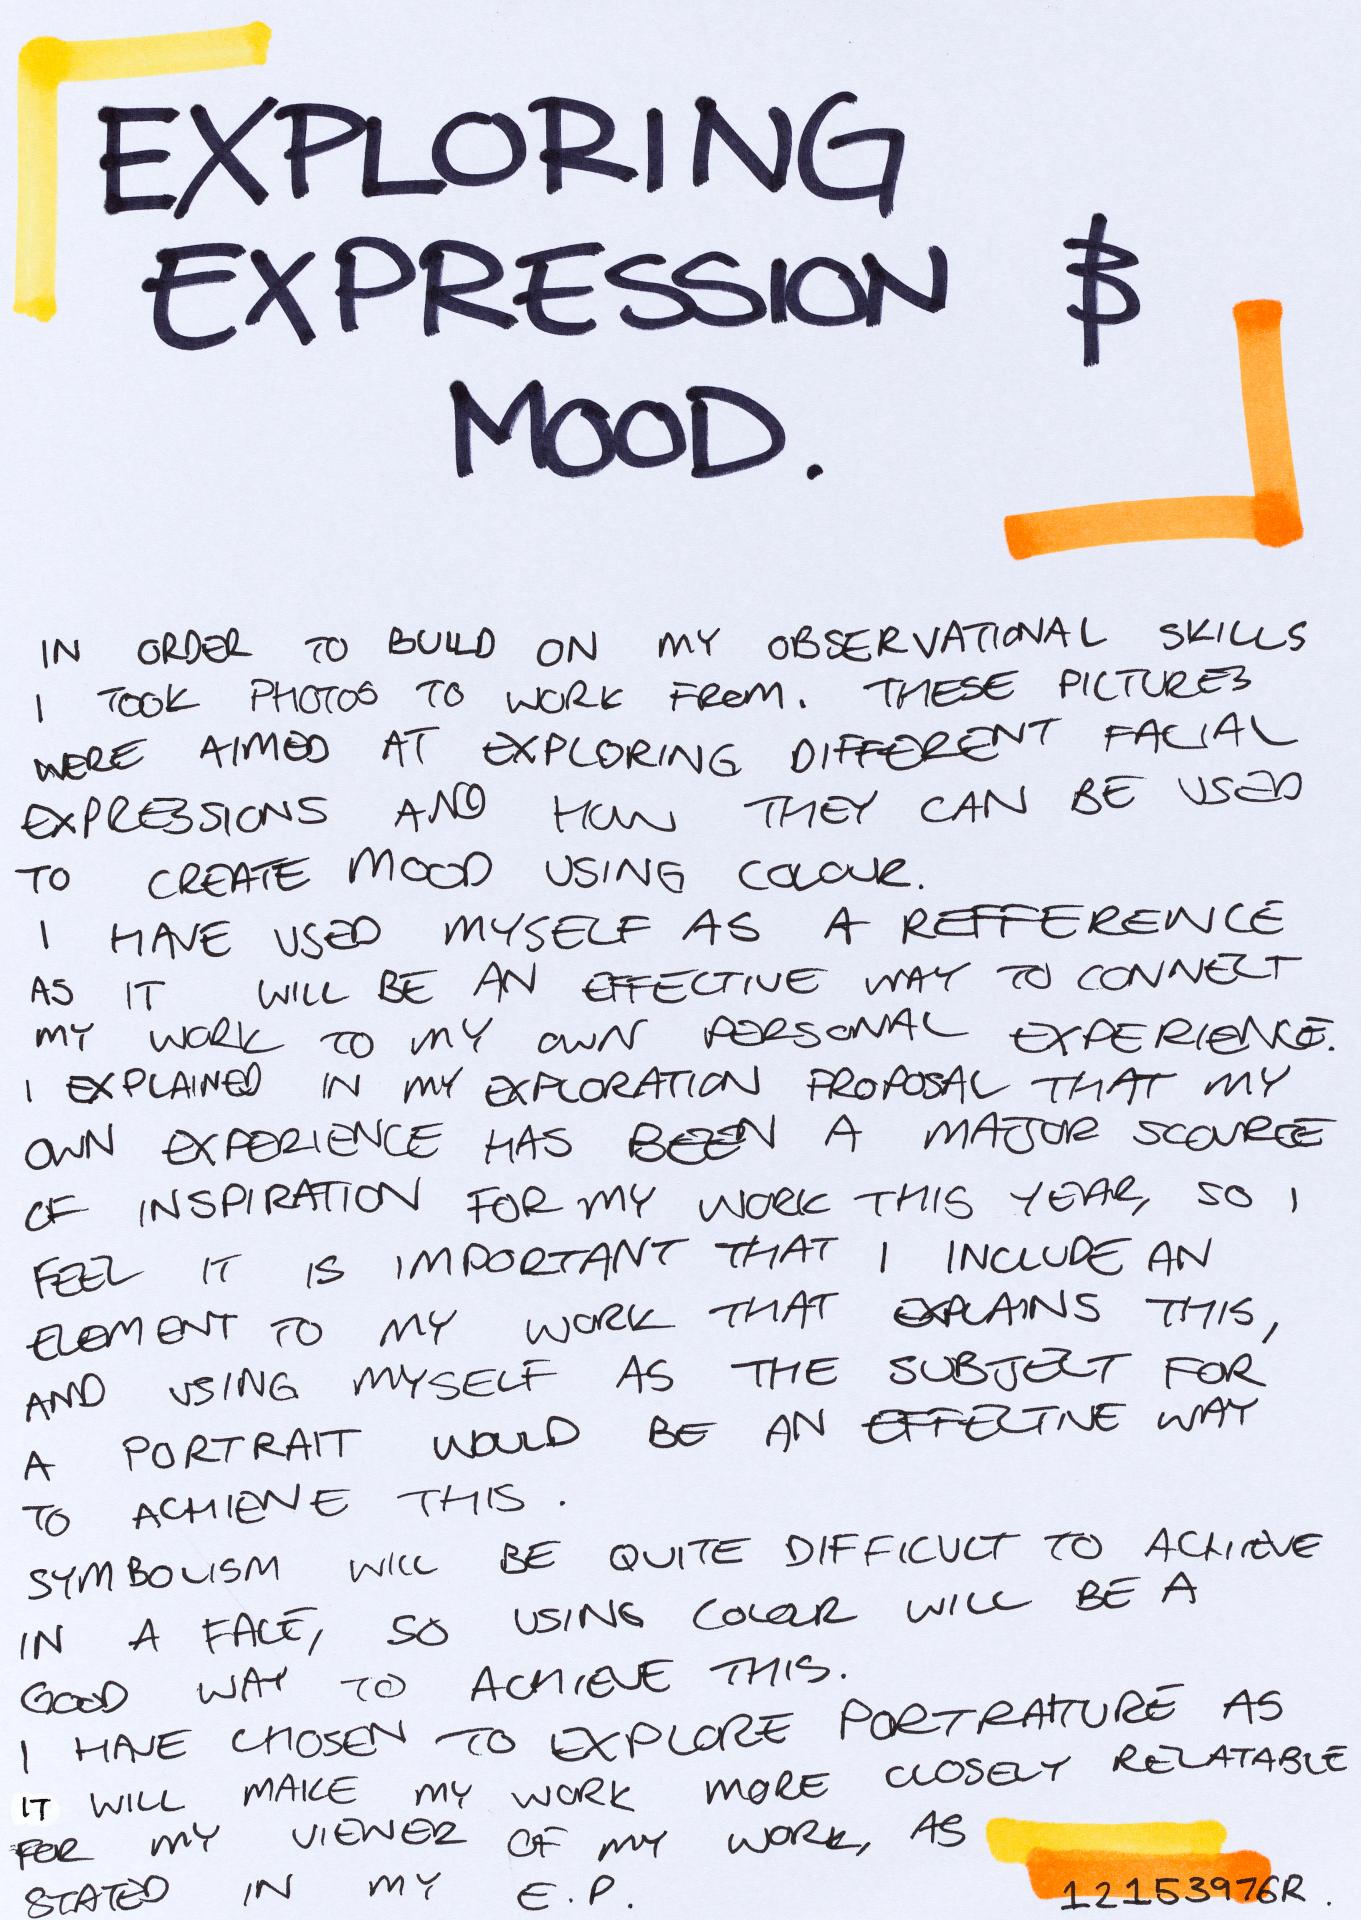 EXPLORING
EXPRESSION &
MOOD.
IN ORDER TO BUILD ON MY OBSERVATIONAL SKILLS
I TOOK PHOTOS TO WORK FROM. THESE PICTURES
WERE AIMED AT EXPLORING DIFFERENT FACIAL
EXPRESSIONS AND HOW THEY CAN BE USED
TO CREATE MOOD USING COLOUR.
I HAVE USED MYSELF AS A REFFERENCE
AS IT WILL BE AN EFFECTIVE WAY TO CONNECT
MY WORK TO MY OWN PERSONAL EXPERIENCE.
I EXPLAINED IN MY EXPLORATION PROPOSAL THAT MY
OWN EXPERIENCE HAS BEEN A MAJOR SCOURCE
OF INSPIRATION FOR MY WORK THIS YEAR, SO I
FEEL IT IS IMPORTANT THAT I INCLUDE AN
ELEMENT TO MY WORK THAT EXPLAINS THIS,
AND USING MYSELF AS THE SUBJECT FOR
A PORTRAIT WOULD BE AN EFFECTIVE WAY
TO ACHIEVE THIS.
SYMBOLISM WILL BE QUITE DIFFICULT TO ACHIEVE
IN A FACE, SO USING COLOUR WILL BE A
GOOD WAY TO ACHIEVE THIS.
I HAVE CHOSEN TO EXPLORE PORTRAITURE AS
IT WILL MAKE MY WORK MORE CLOSELY RELATABLE
FOR MY VIEWER OF MY WORK, AS
STATED IN MY E.P. 12153976R.